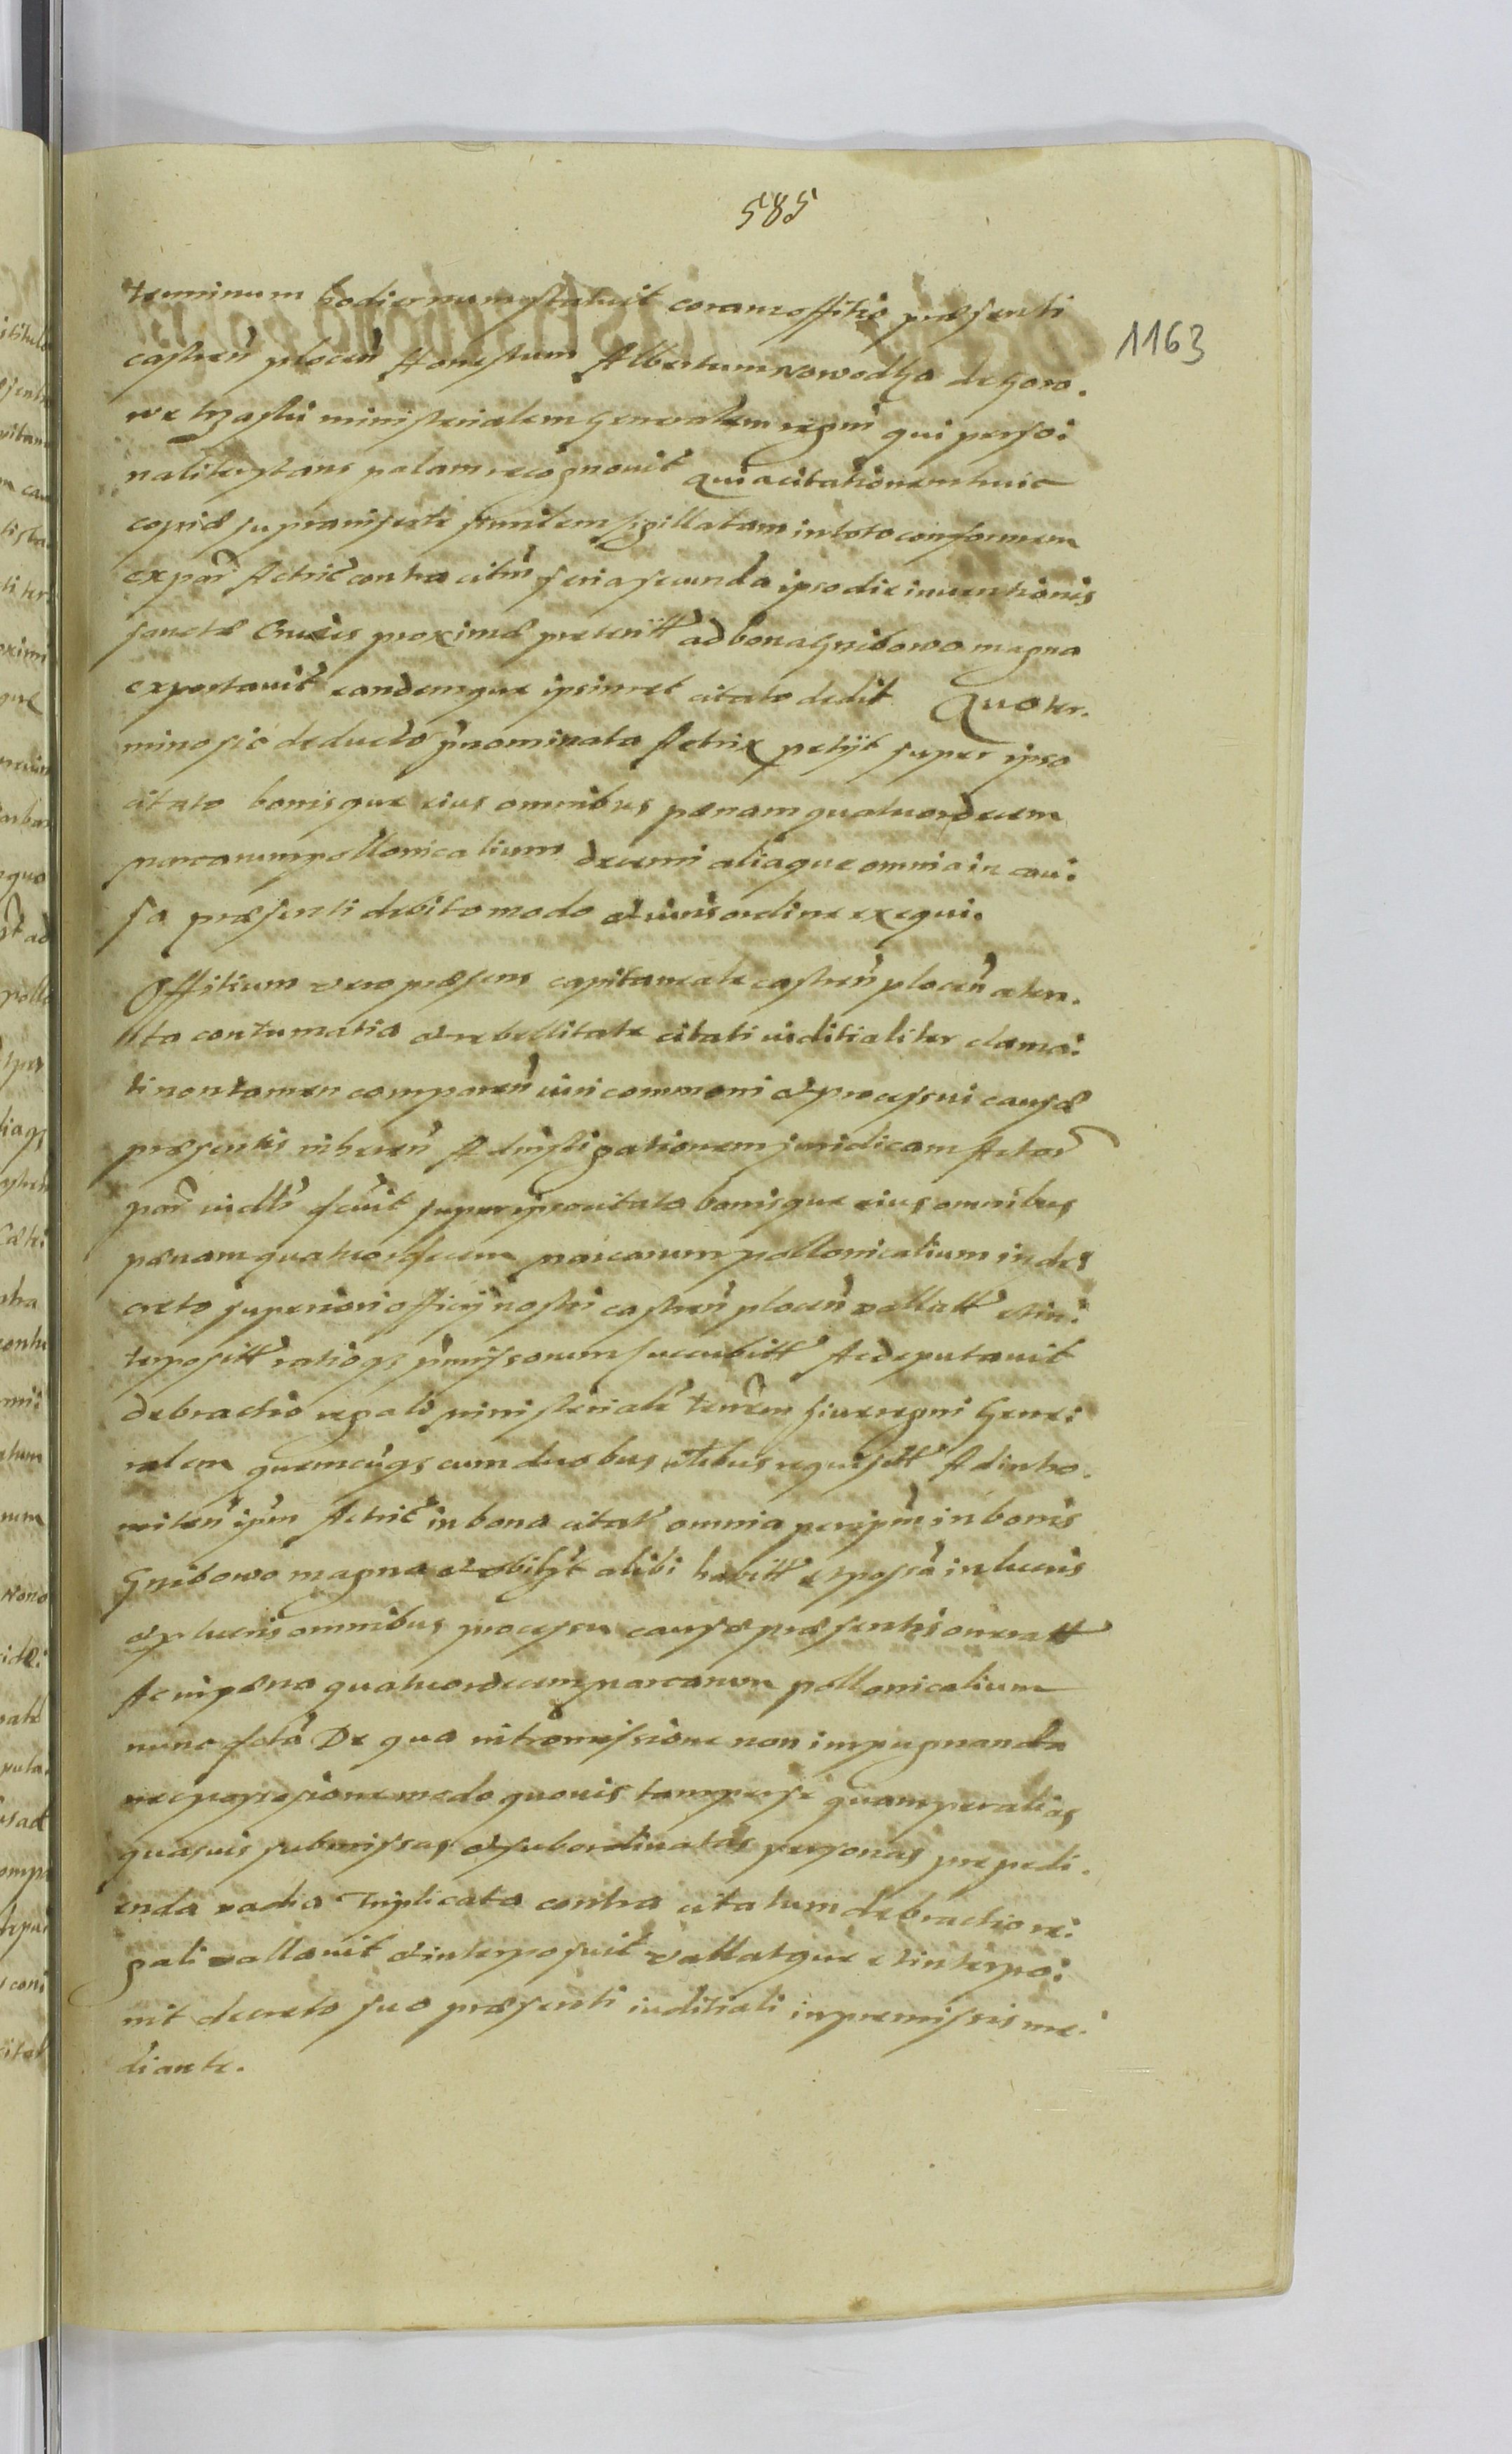 585
1163
terminum hodiernum statuit coram offitio præsenti
castren̄ plocen̄ Honestum Albertum Nowodka de Goro.
we trzaski ministerialem Generalem regni qui perso:
naliter stans palam recognovit Quia citationem huic
copiæ suprainserte similem sigillatam in toto conformem
ex par̄ Actric̄ contra cit̄m feria secunda ipso die inuentionis
sanctæ Crucis proximæ preterit̄t ad bona Gnibowo magna
exportauit eandemque ipsimet citato dedit Quo ter.
mino sic deducto p̄nominata Actrix petijt super ipso
citato bonisque eius omnibus pænam quatuordecem
marcarum pollonicalium decerni aliaque omnia in cau:
sa præsenti debito modo et iuris ordine exequi.
Offitium vero præsens capitaneale castren̄ plocen̄ aten.
ta contumatia et rebellitate citati iuditialiter clama:
ti non tamen comparen̄ iuri communi et processui causæ
præsentis inheren̄ Ad instigationem juridicam Actor̄
par̄ iudt̄r decr̄uit super ipso citato bonisque eius omnibus
pænam quatuordecem marcarum pollonicalium in de:
creto superiori officij nostri castren̄ plocen̄ vallatt̄ et in:
terposit̄t rat̄iōq̄ p̄missorum succubit̄t Ac deputauit
de brachio regali ministerialē terrēm siue regni Gene:
ralem quemcunq̄ cum duobus n̄bilibus requisit̄t Ad intro.
miten̄ ip̄m Actric̄ in bona citat̄i omnia per ip̄m in bonis
Gnibowo magna et vbilib̄t alibi habit̄t et possā in lucris
et pluris omnibus processu causæ præsentis onerat̄t
Ac in pæna quatuordecem marcarum pollonicalium
nunc fc̄ta De qua intromissione non impugnanda
nec possessione modo quouis tam per se quam per alias
quasuis submissas et subordinatas personas prepedi.
enda vadia Triplicata contra citatum de brachio re:
gali vallauit et interposuit vallatque et interpo:
nit decreto suo præsenti iuditiali in premissis me:
diante.